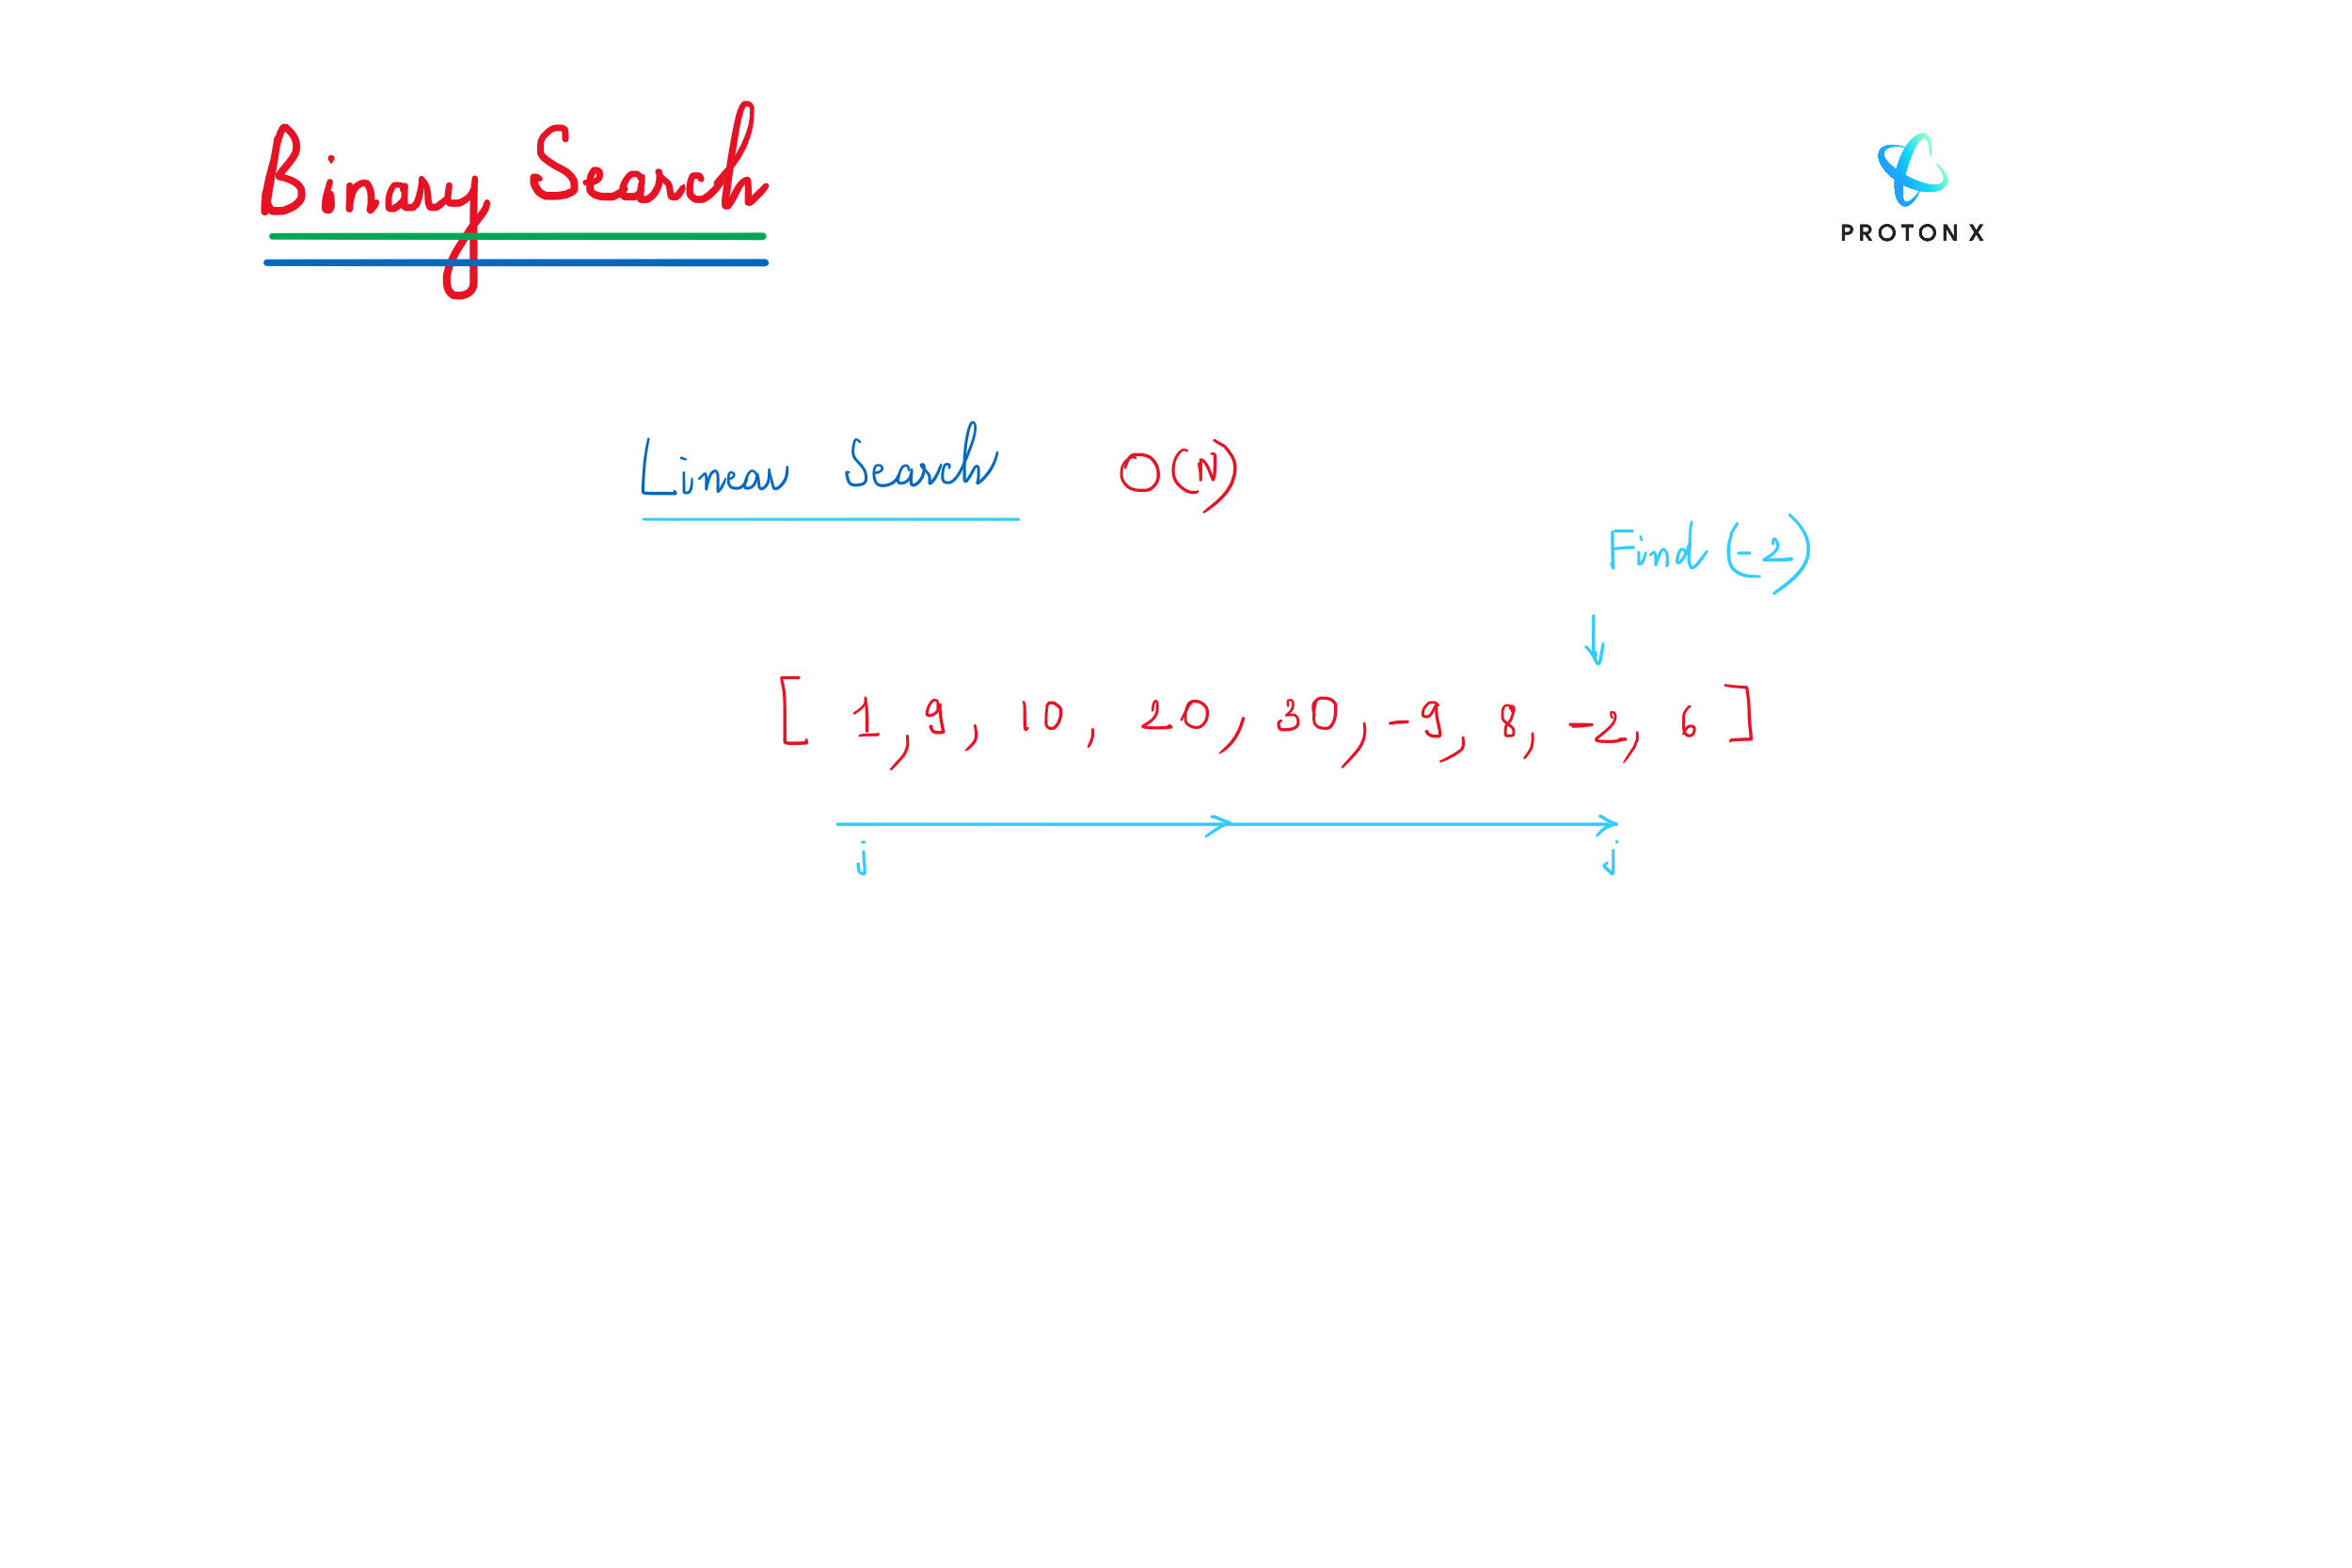 Binary Search
PROTON X
Linear Search O(N)
Find (-2)
[ 1, 9, 10, 20, 30, -9, 8, -2, 6 ]
j j